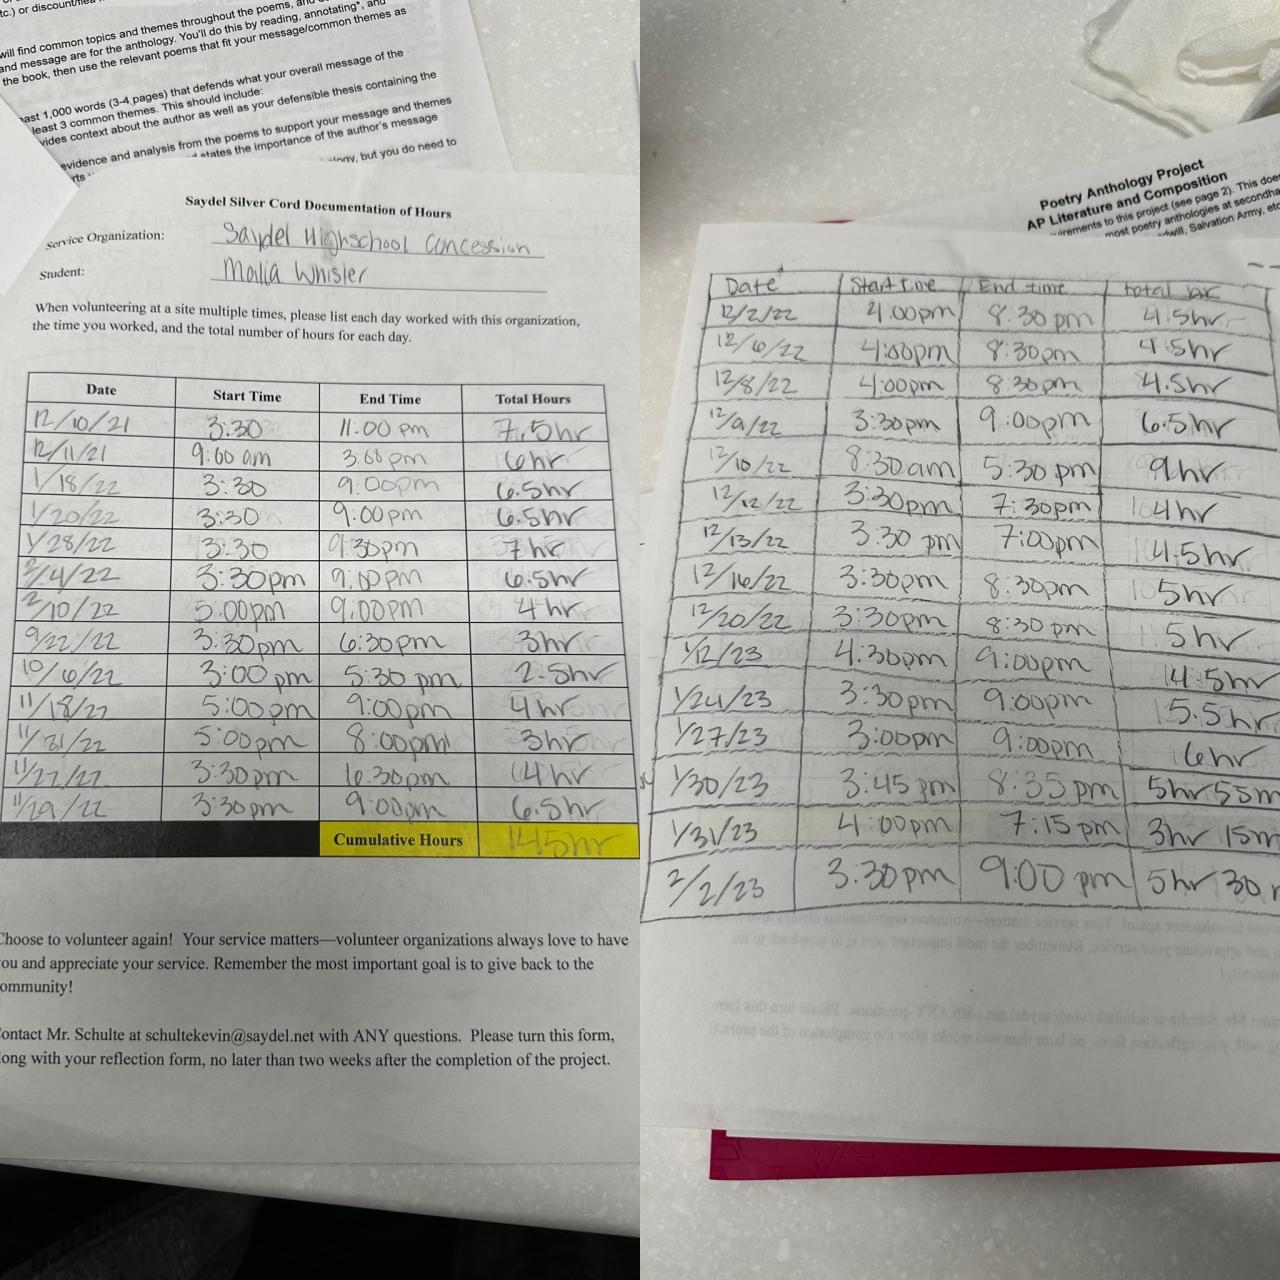 tc.) or discount/
will find common topics and themes throughout the poems, and
and message are for the anthology. You'll do this by reading, annotating*, and
the book, then use the relevant poems that fit your message/common themes as
east 1,000 words (3-4 pages) that defends what your overall message of the
least 3 common themes. This should include:
vides context about the author as well as your defensible thesis containing the
evidence and analysis from the poems to support your message and themes
states the importance of the author's message
rts
but you do need to
Saydel Silver Cord Documentation of Hours
Service Organization: Saydel Highschool Concession
Student: Malia Whisler
When volunteering at a site multiple times, please list each day worked with this organization,
the time you worked, and the total number of hours for each day.
Date Start Time End Time Total Hours
12/10/21 3:30 11:00 pm 7.5hr
12/11/21 9:00 am 3:00 pm 6hr
1/18/22 3:30 9:00pm 6.5hr
1/20/22 3:30 9:00pm 6.5hr
1/28/22 3:30 9:30pm 7hr
2/4/22 3:30pm 9:00pm 6.5hr
2/10/22 5:00pm 9:00pm 4hr
9/22/22 3:30pm 6:30pm 3hr
10/6/22 3:00pm 5:30pm 2.5hr
11/18/22 5:00pm 9:00pm 4hr
11/21/22 5:00pm 8:00pm 3hr
11/22/22 3:30pm 6:30pm 4hr
11/29/22 3:30pm 9:00pm 6.5hr
Cumulative Hours 145hr
Choose to volunteer again! Your service matters—volunteer organizations always love to have
you and appreciate your service. Remember the most important goal is to give back to the
ommunity!
ontact Mr. Schulte at schultekevin@saydel.net with ANY questions. Please turn this form,
long with your reflection form, no later than two weeks after the completion of the project.
Poetry Anthology Project
AP Literature and Composition
uirements to this project (see page 2). This doe
most poetry anthologies at secondha
Salvation Army, etc
Date Start time End time total hr
12/2/22 4:00pm 8:30pm 4.5hr
12/6/22 4:00pm 8:30pm 4.5hr
12/8/22 4:00pm 8:30pm 4.5hr
12/9/22 3:30pm 9:00pm 6.5hr
12/10/22 8:30am 5:30pm 9hr
12/12/22 3:30pm 7:30pm 4hr
12/13/22 3:30pm 7:00pm 4.5hr
12/16/22 3:30pm 8:30pm 5hr
12/20/22 3:30pm 8:30pm 5hr
1/12/23 4:30pm 9:00pm 4.5hr
1/24/23 3:30pm 9:00pm 5.5hr
1/27/23 3:00pm 9:00pm 6hr
1/30/23 3:45pm 8:35pm 5hr 55m
1/31/23 4:00pm 7:15pm 3hr 15m
2/2/23 3:30pm 9:00pm 5hr 30